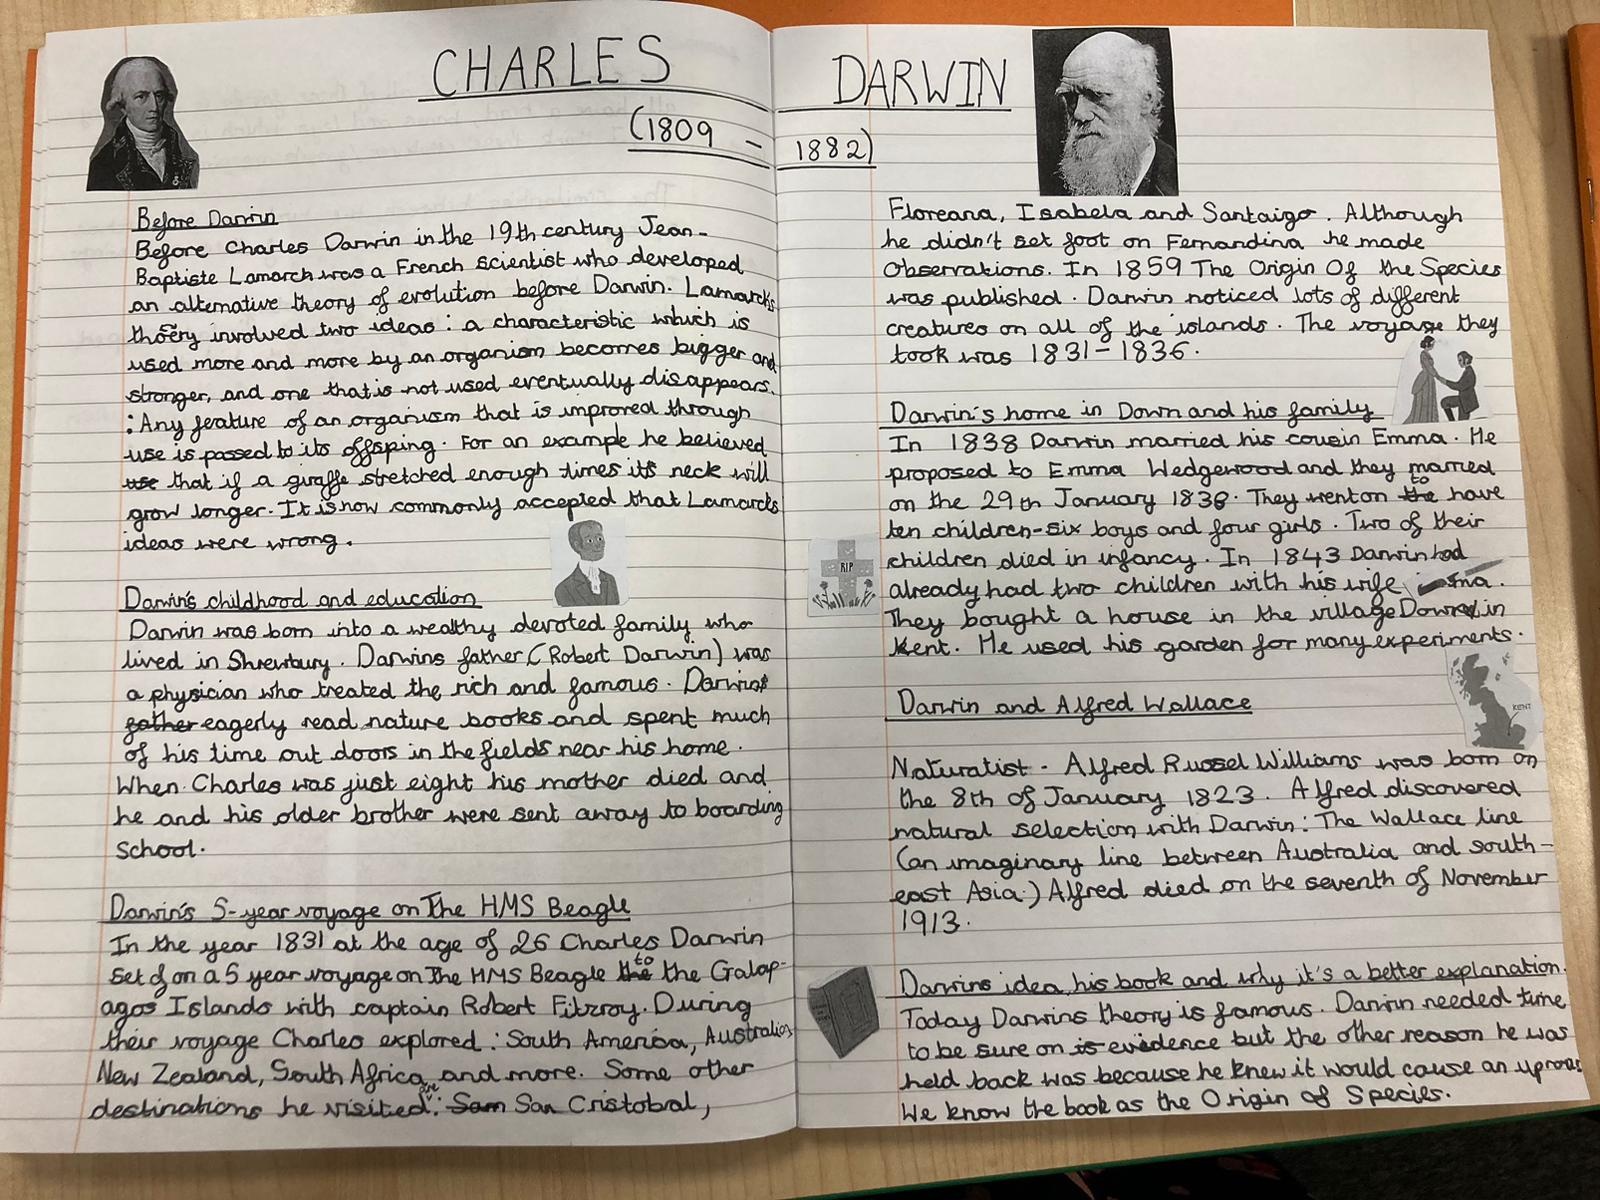 CHARLES DARWIN
(1809 - 1882)
Before Darwin
Before Charles Darwin in the 19th century Jean-
Baptiste Lamarch was a French scientist who developed
an alternative theory of evolution before Darwin. Lamarck's
theory involved two ideas: a characteristic which is
used more and more by an organism becomes bigger and
stronger, and one that is not used eventually disappears.
: Any feature of an organism that is improved through
use is passed to its offsping. For an example he believed
use that if a giraffe stretched enough times its neck will
grow longer. It is now commonly accepted that Lamarcks
ideas were wrong.
Darwin's childhood and education
Darwin was born into a wealthy devoted family who
lived in Shrewbury. Darwins father (Robert Darwin) was
a physician who treated the rich and famous. Darwins
father eagerly read nature books and spent much
of his time out doors in the fields near his home.
When Charles was just eight his mother died and
he and his older brother were sent away to boarding
school.
Darwin's 5-year voyage on The HMS Beagle
In the year 1831 at the age of 26 Charles Darwin
set of on a 5 year voyage on The HMS Beagle the to the Galap-
agos Islands with captain Robert Fitzroy. During
their voyage Charles explored: South America, Australia,
New Zealand, South Africa and more. Some other
destinations he visited are: Sam San Cristobal,
Floreana, Isabela and Santaigo. Although
he didn't set foot on Fernandina he made
Observations. In 1859 The Origin Of the Species
was published. Darwin noticed lots of different
creatures on all of the islands. The voyage they
took was 1831-1836.
Darwin's home in Down and his family
In 1838 Darwin married his cousin Emma. He
proposed to Emma Wedgewood and they married
on the 29th January 1838. They went on the to have
ten children-six boys and four girls. Two of their
children died in infancy. In 1843 Darwin had
already had two children with his wife
They bought a house in the village in
Kent. He used his garden for many experiments.
RIP
KENT
Darwin and Alfred Wallace
Naturalist - Alfred Russel Williams was born on
the 8th of January 1823. Alfred discovered
natural selection with Darwin: The Wallace line
(an imaginary line between Australia and south-
east Asia.) Alfred died on the seventh of November
1913.
Darwins idea, his book and why it's a better explanation.
Today Darwins theory is famous. Darwin needed time
to be sure on is evidence but the other reason he was
held back was because he knew it would cause an uproar
We know the book as the Origin of Species.